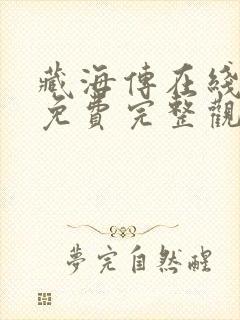 藏海傳在綫
免費完整觀
夢完自然醒